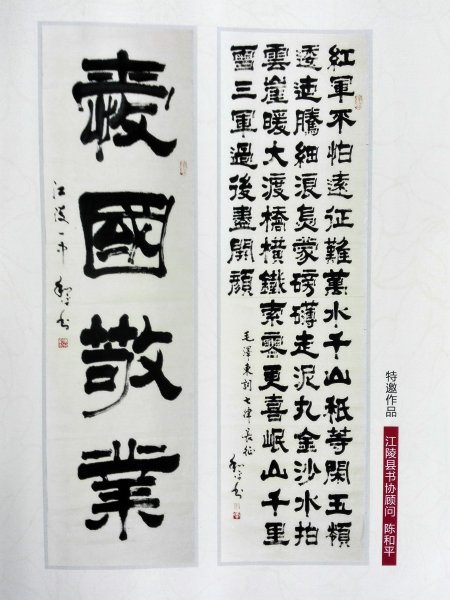 紅軍不怕遠征難萬水千山祇等閑五嶺
逶迤騰細浪烏蒙磅礴走泥丸金沙水拍
雲崖暖大渡橋橫鐵索寒更喜岷山千里
雪三軍過後盡開顏
毛澤東詞七律長征
和平書
愛國敬業
江陵一中
和平書
特邀作品
江陵县书协顾问 陈和平